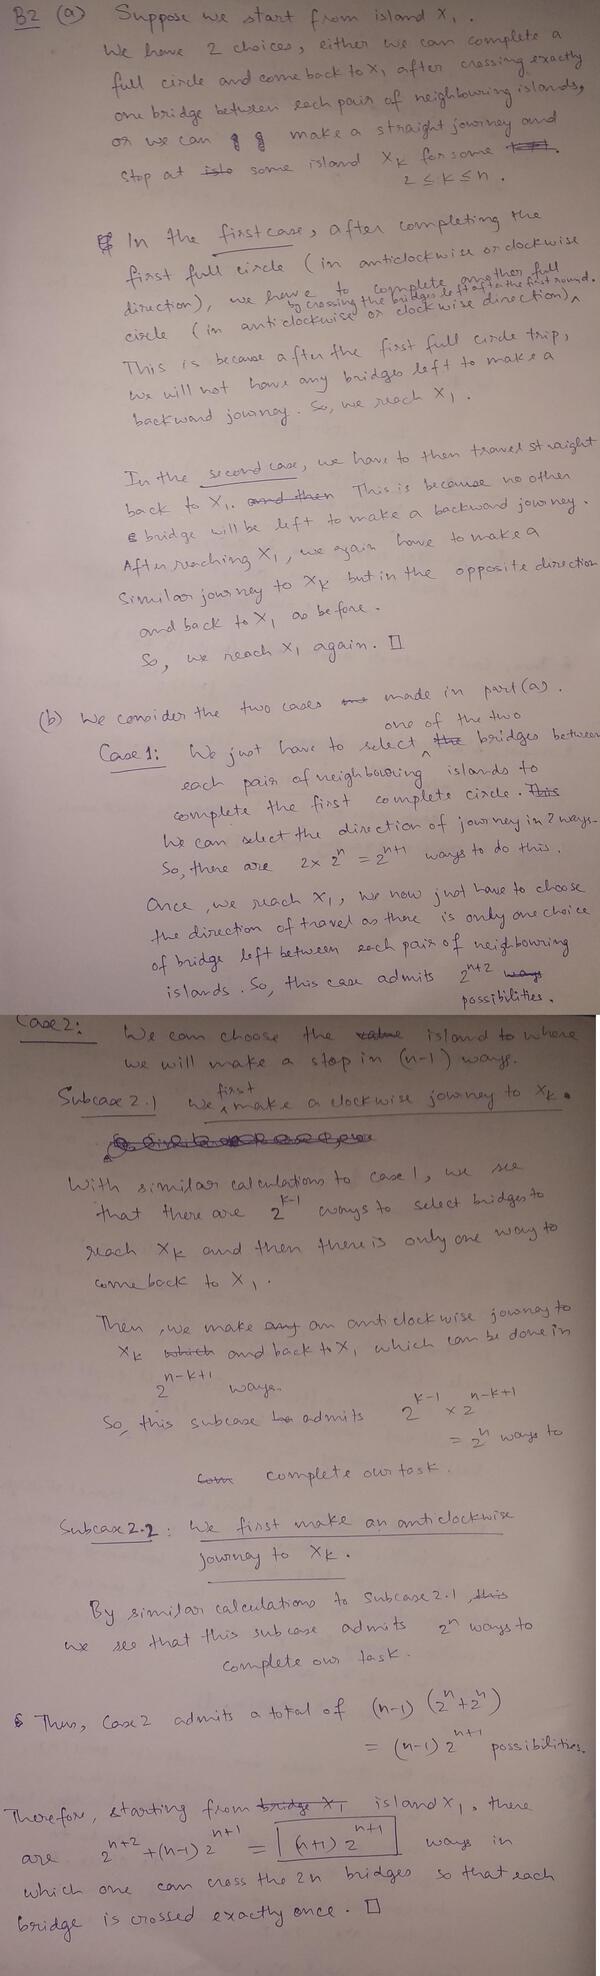 B2 (a) Suppose we start from island X₁.
We have 2 choices, either we can complete a
full circle and come back to X₁ after crossing exactly
one bridge between each pair of neighbouring islands,
or we can make a straight journey and
stop at some island Xₖ for some
2 ≤ k ≤ n.
In the first case, after completing the
first full circle (in anticlockwise or clockwise
direction), we have to complete another full
by crossing the bridges left after the first round.
circle (in anticlockwise or clockwise direction)^
This is because after the first full circle trip,
we will not have any bridges left to make a
backward journey. So, we reach X₁.
In the second case, we have to then travel straight
back to X₁. and then This is because no other
bridge will be left to make a backward journey.
After reaching X₁, we again have to make a
similar journey to Xₖ but in the opposite direction
and back to X₁ as before.
So, we reach X₁ again. □
(b) We consider the two cases made in part (a).
one of the two
Case 1: We just have to select ^ the bridges between
each pair of neighbouring islands to
complete the first complete circle. This
We can select the direction of journey in 2 ways.
So, there are 2 × 2ⁿ = 2ⁿ⁺¹ ways to do this.
Once, we reach X₁, we now just have to choose
the direction of travel as there is only one choice
of bridge left between each pair of neighbouring
islands. So, this case admits 2ⁿ⁺² ways
possibilities.
Case 2: We can choose the value island to where
we will make a stop in (n-1) ways.
first
Subcase 2.1 We ^ make a clockwise journey to Xₖ.
With similar calculations to case 1, we see
that there are 2ᵏ⁻¹ ways to select bridges to
reach Xₖ and then there is only one way to
come back to X₁.
Then, we make any an anticlockwise journey to
Xₖ which and back to X₁ which can be done in
2ⁿ⁻ᵏ⁺¹ ways.
So, this subcase admits 2ᵏ⁻¹ × 2ⁿ⁻ᵏ⁺¹
= 2ⁿ ways to
complete our task.
Subcase 2.2: We first make an anticlockwise
journey to Xₖ.
By similar calculations to Subcase 2.1, this
we see that this subcase admits 2ⁿ ways to
complete our task.
Thus, Case 2 admits a total of (n-1) (2ⁿ+2ⁿ)
= (n-1) 2ⁿ⁺¹ possibilities.
Therefore, starting from bridge X₁ island X₁, there
are 2ⁿ⁺² + (n-1) 2ⁿ⁺¹ = (n+1) 2ⁿ⁺¹ ways in
which one can cross the 2n bridges so that each
bridge is crossed exactly once. □